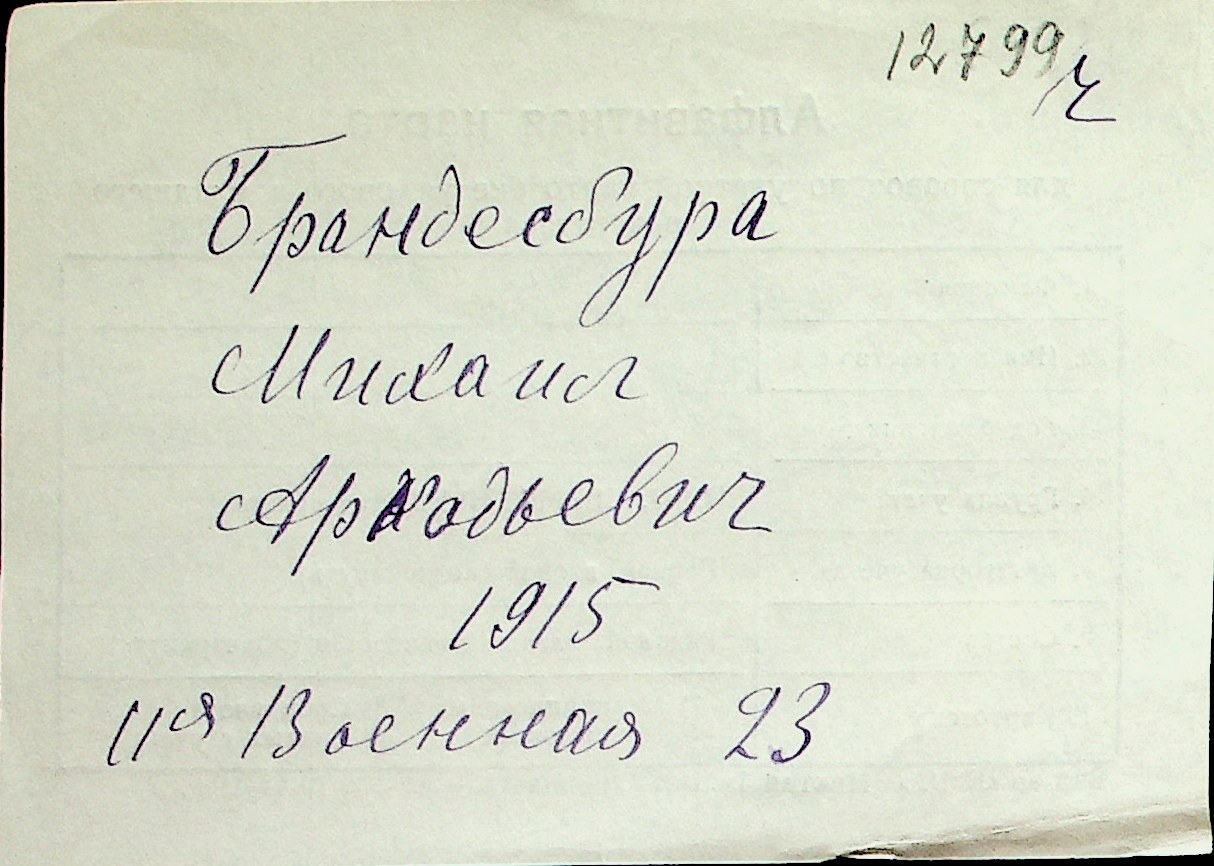 12799/ч
Брандесбура
Михаил
Аркадьевич
1915
11ая Военная 23